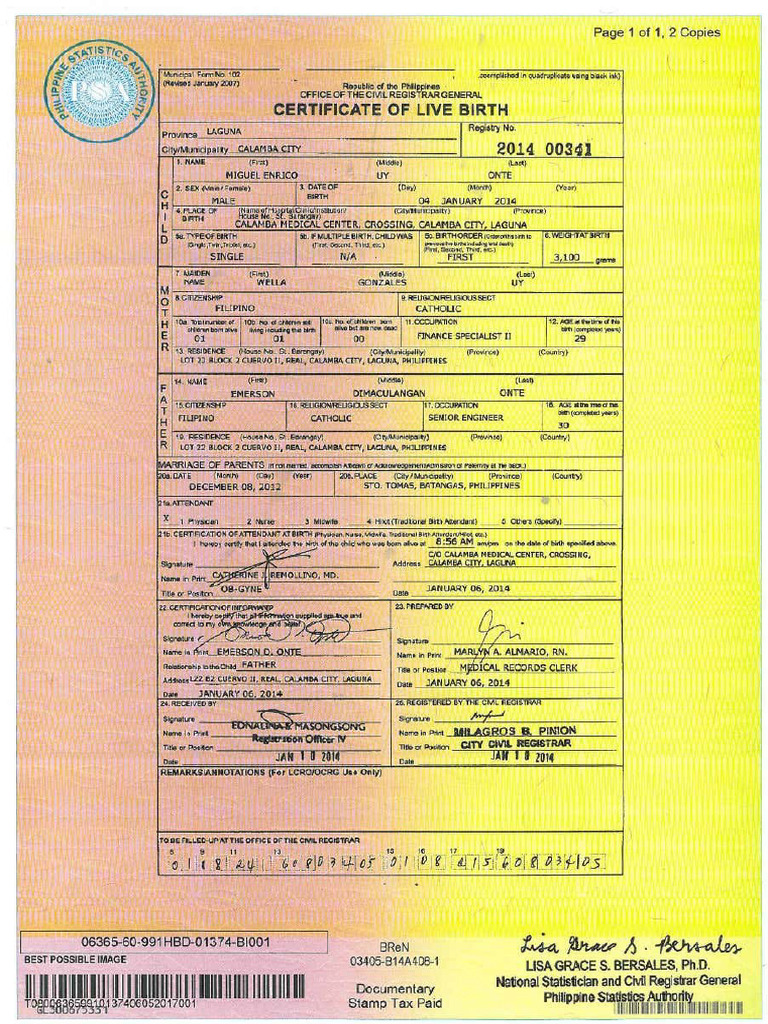 Page 1 of 1, 2 Copies
PHILIPPINE STATISTICS AUTHORITY
PSA
Municipal Form No. 102
(Revised January 2007)
(accomplished in quadruplicate using black ink)
Republic of the Philippines
OFFICE OF THE CIVIL REGISTRAR GENERAL
CERTIFICATE OF LIVE BIRTH
Province LAGUNA
City/Municipality CALAMBA CITY
Registry No.
2014 00341
CHILD
1. NAME (First) (Middle) (Last)
MIGUEL ENRICO UY ONTE
2. SEX (Male / Female) 3. DATE OF BIRTH (Day) (Month) (Year)
MALE 04 JANUARY 2014
4. PLACE OF BIRTH (Name of Hospital/Clinic/Institution/ House No. St. Barangay) (City/Municipality) (Province)
CALAMBA MEDICAL CENTER, CROSSING, CALAMBA CITY, LAGUNA
5a. TYPE OF BIRTH (Single, Twin, Triplet, etc.) 5b. IF MULTIPLE BIRTH, CHILD WAS (First, Second, Third, etc.) 5c. BIRTH ORDER (First, Second, Third, etc.) 6. WEIGHT AT BIRTH
SINGLE N/A FIRST 3,100 grams
MOTHER
7. MAIDEN NAME (First) (Middle) (Last)
WELLA GONZALES UY
8. CITIZENSHIP 9. RELIGION/RELIGIOUS SECT
FILIPINO CATHOLIC
10a. Total number of children born alive 10b. No. of children still living including this birth 10c. No. of children born alive but are now dead 11. OCCUPATION 12. AGE at the time of this birth (completed years)
01 01 00 FINANCE SPECIALIST II 29
13. RESIDENCE (House No., St., Barangay) (City/Municipality) (Province) (Country)
LOT 22 BLOCK 2 CUERVO II, REAL, CALAMBA CITY, LAGUNA, PHILIPPINES
FATHER
14. NAME (First) (Middle) (Last)
EMERSON DIMACULANGAN ONTE
15. CITIZENSHIP 16. RELIGION/RELIGIOUS SECT 17. OCCUPATION 18. AGE at the time of this birth (completed years)
FILIPINO CATHOLIC SENIOR ENGINEER 30
19. RESIDENCE (House No., St., Barangay) (City/Municipality) (Province) (Country)
LOT 22 BLOCK 2 CUERVO II, REAL, CALAMBA CITY, LAGUNA, PHILIPPINES
MARRIAGE OF PARENTS (If not married, accomplish Affidavit of Acknowledgement/Admission of Paternity at the back.)
20a. DATE (Month) (Day) (Year) 20b. PLACE (City / Municipality) (Province) (Country)
DECEMBER 08, 2012 STO. TOMAS, BATANGAS, PHILIPPINES
21a. ATTENDANT
X 1 Physician 2 Nurse 3 Midwife 4 Hilot (Traditional Birth Attendant) 5 Others (Specify)
21b. CERTIFICATION OF ATTENDANT AT BIRTH (Physician, Nurse, Midwife, Traditional Birth Attendant/Hilot, etc.)
I hereby certify that I attended the birth of the child who was born alive at 8:56 AM am/pm on the date of birth specified above.
Signature
Name in Print CATHERINE J. REMOLLINO, MD.
Title or Position OB-GYNE
Address C/O CALAMBA MEDICAL CENTER, CROSSING, CALAMBA CITY, LAGUNA
Date JANUARY 06, 2014
22. CERTIFICATION OF INFORMANT
I hereby certify that all information supplied are true and correct to my own knowledge and belief.
Signature
Name in Print EMERSON D. ONTE
Relationship to the Child FATHER
Address L22 B2 CUERVO II, REAL, CALAMBA CITY, LAGUNA
Date JANUARY 06, 2014
23. PREPARED BY
Signature
Name in Print MARLYN A. ALMARIO, RN.
Title or Position MEDICAL RECORDS CLERK
Date JANUARY 06, 2014
24. RECEIVED BY
Signature
Name in Print EDNALINA E. MASONGSONG
Title or Position Registration Officer IV
Date JAN 10 2014
25. REGISTERED BY THE CIVIL REGISTRAR
Signature
Name in Print MILAGROS B. PINION
Title or Position CITY CIVIL REGISTRAR
Date JAN 10 2014
REMARKS/ANNOTATIONS (For LCRO/OCRG Use Only)
TO BE FILLED-UP AT THE OFFICE OF THE CIVIL REGISTRAR
8 9 11 13 15 16 17 19
06365-60-991HBD-01374-BI001
BEST POSSIBLE IMAGE
T080063659910137406052017001
BReN
03405-B14A408-1
Documentary
Stamp Tax Paid
Lisa Grace S. Bersales
LISA GRACE S. BERSALES, Ph.D.
National Statistician and Civil Registrar General
Philippine Statistics Authority